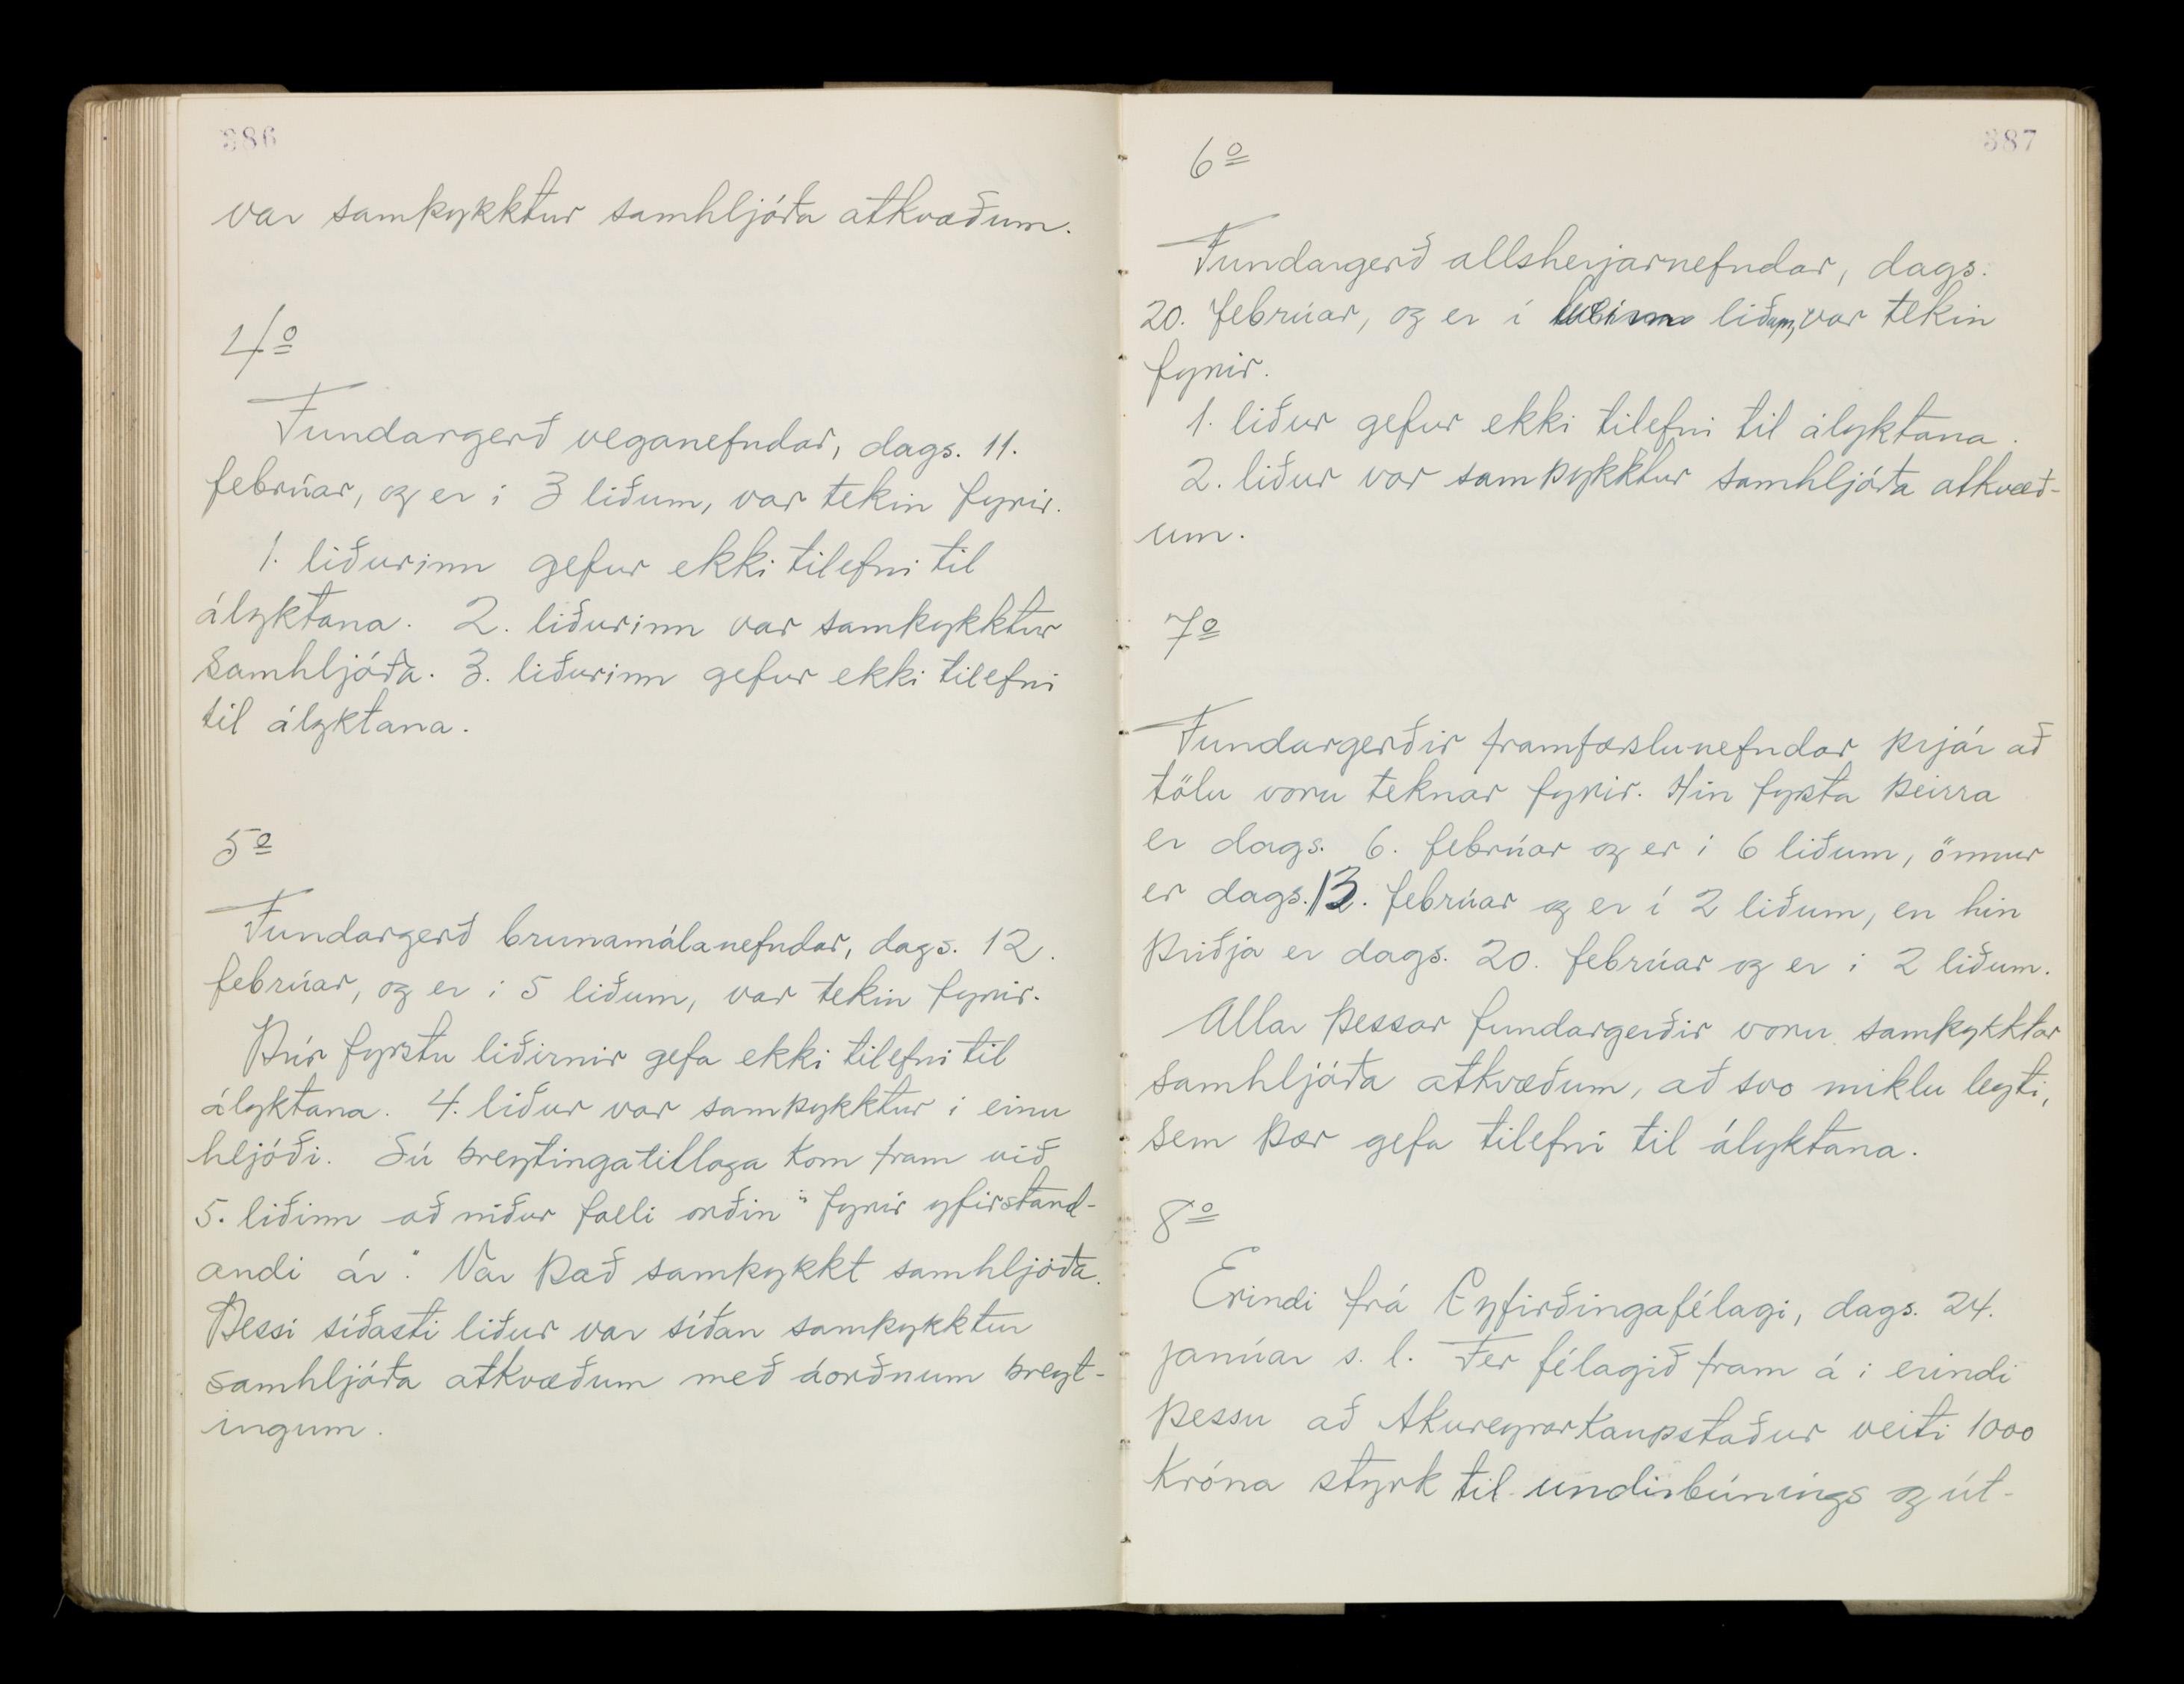 386
var samþykktur samhljóða atkvæðum.
4o
Fundargerð veganefndar, dags. 11.
febrúar, og er i 3 liðum, var tekin fyrir.
1. liðurinn gefur ekki tilefni til
ályktana. 2. liðurinn var samþykktur
samhljóða. 3. liðurinn gefur ekki tilefni
til ályktana.
5o
Fundargerð brunamálanefndar, dags. 12.
febrúar, og er i 5 liðum, var tekin fyrir.
Þrír fyrstu liðirnir gefa ekki tilefni til
ályktana. 4. liður var samþykktur i einu
hljóði. Sú breytingatillaga kom fram við
5. liðinn að niður falli orðin "fyrir yfirstand-
andi ár". Var það samþykkt samhljóða.
Þessi síðasti liður var síðan samþykktur
samhljóða atkvæðum með áorðnum breyt-
ingum.
387
6o
Fundargerð allsherjarnefndar, dags.
20. febrúar, og er í tveimur liðum, var tekin
fyrir.
1. liður gefur ekki tilefni til ályktana.
2. liður var samþykktur samhljóða atkvæð-
um.
7o
Fundargerðir framfærslunefndar þrjár að
tölu voru teknar fyrir. Hin fyrsta þeirra
er dags. 6. febrúar og er i 6 liðum, önnur
er dags. 13. febrúar og er í 2 liðum, en hin
þriðja er dags. 20. febrúar og er i 2 liðum.
Allar þessar fundargerðir voru samþykktar
samhljóða atkvæðum, að svo miklu leyti,
sem þær gefa tilefni til ályktana.
8o
Erindi frá Eyfirðingafélagi, dags. 24.
janúar s. l. Fer félagið fram á i erindi
þessu að Akureyrarkaupstaður veiti 1000
króna styrk til undirbúnings og út-